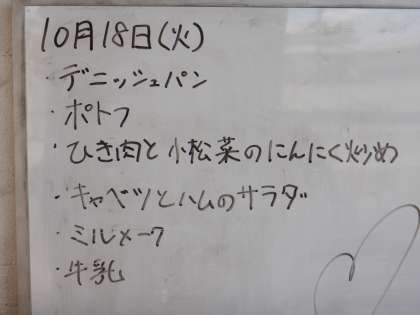 10月18日(火)
・デニッシュパン
・ポトフ
・ひき肉と小松菜のにんにく炒め
・キャベツとハムのサラダ
・ミルメーク
・牛乳